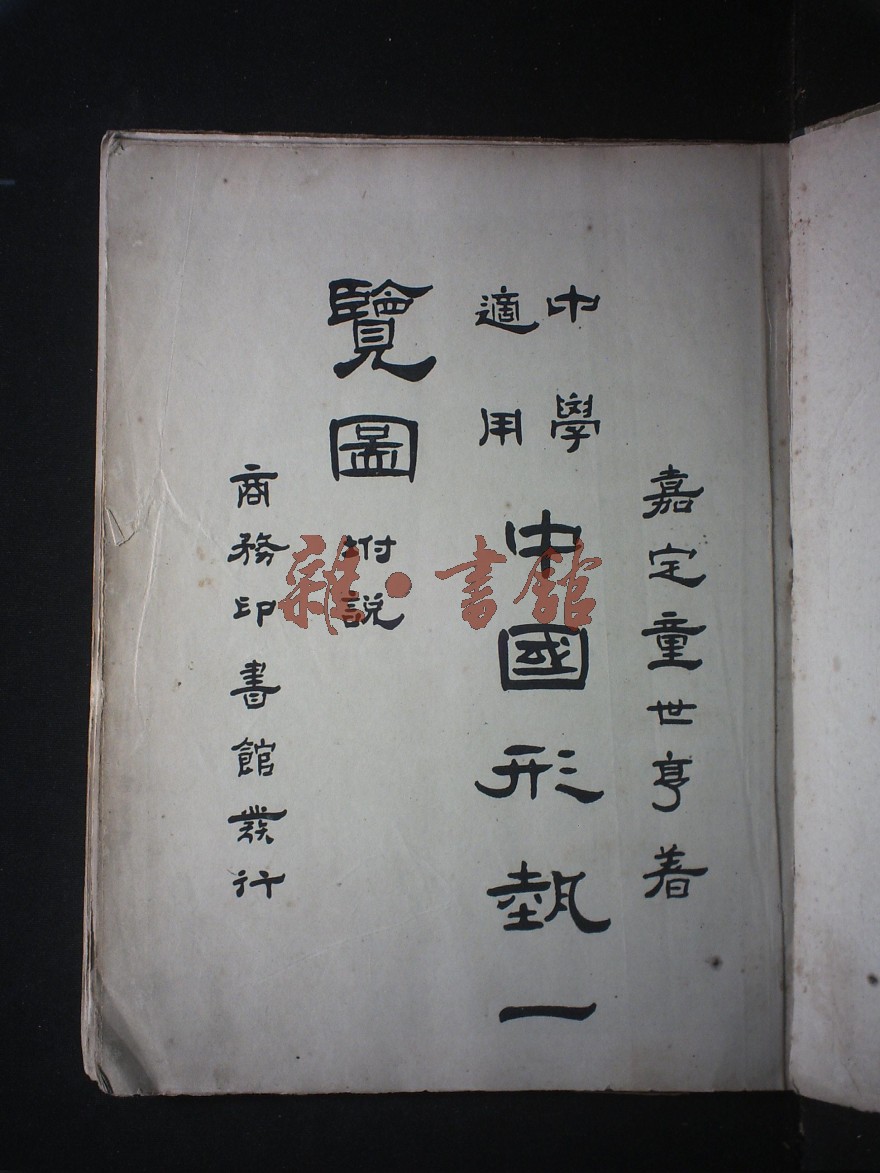 嘉定童世亨着
中學
適用
中國形埶一
覽圖
坿説
商務印書館發行
雜·書館